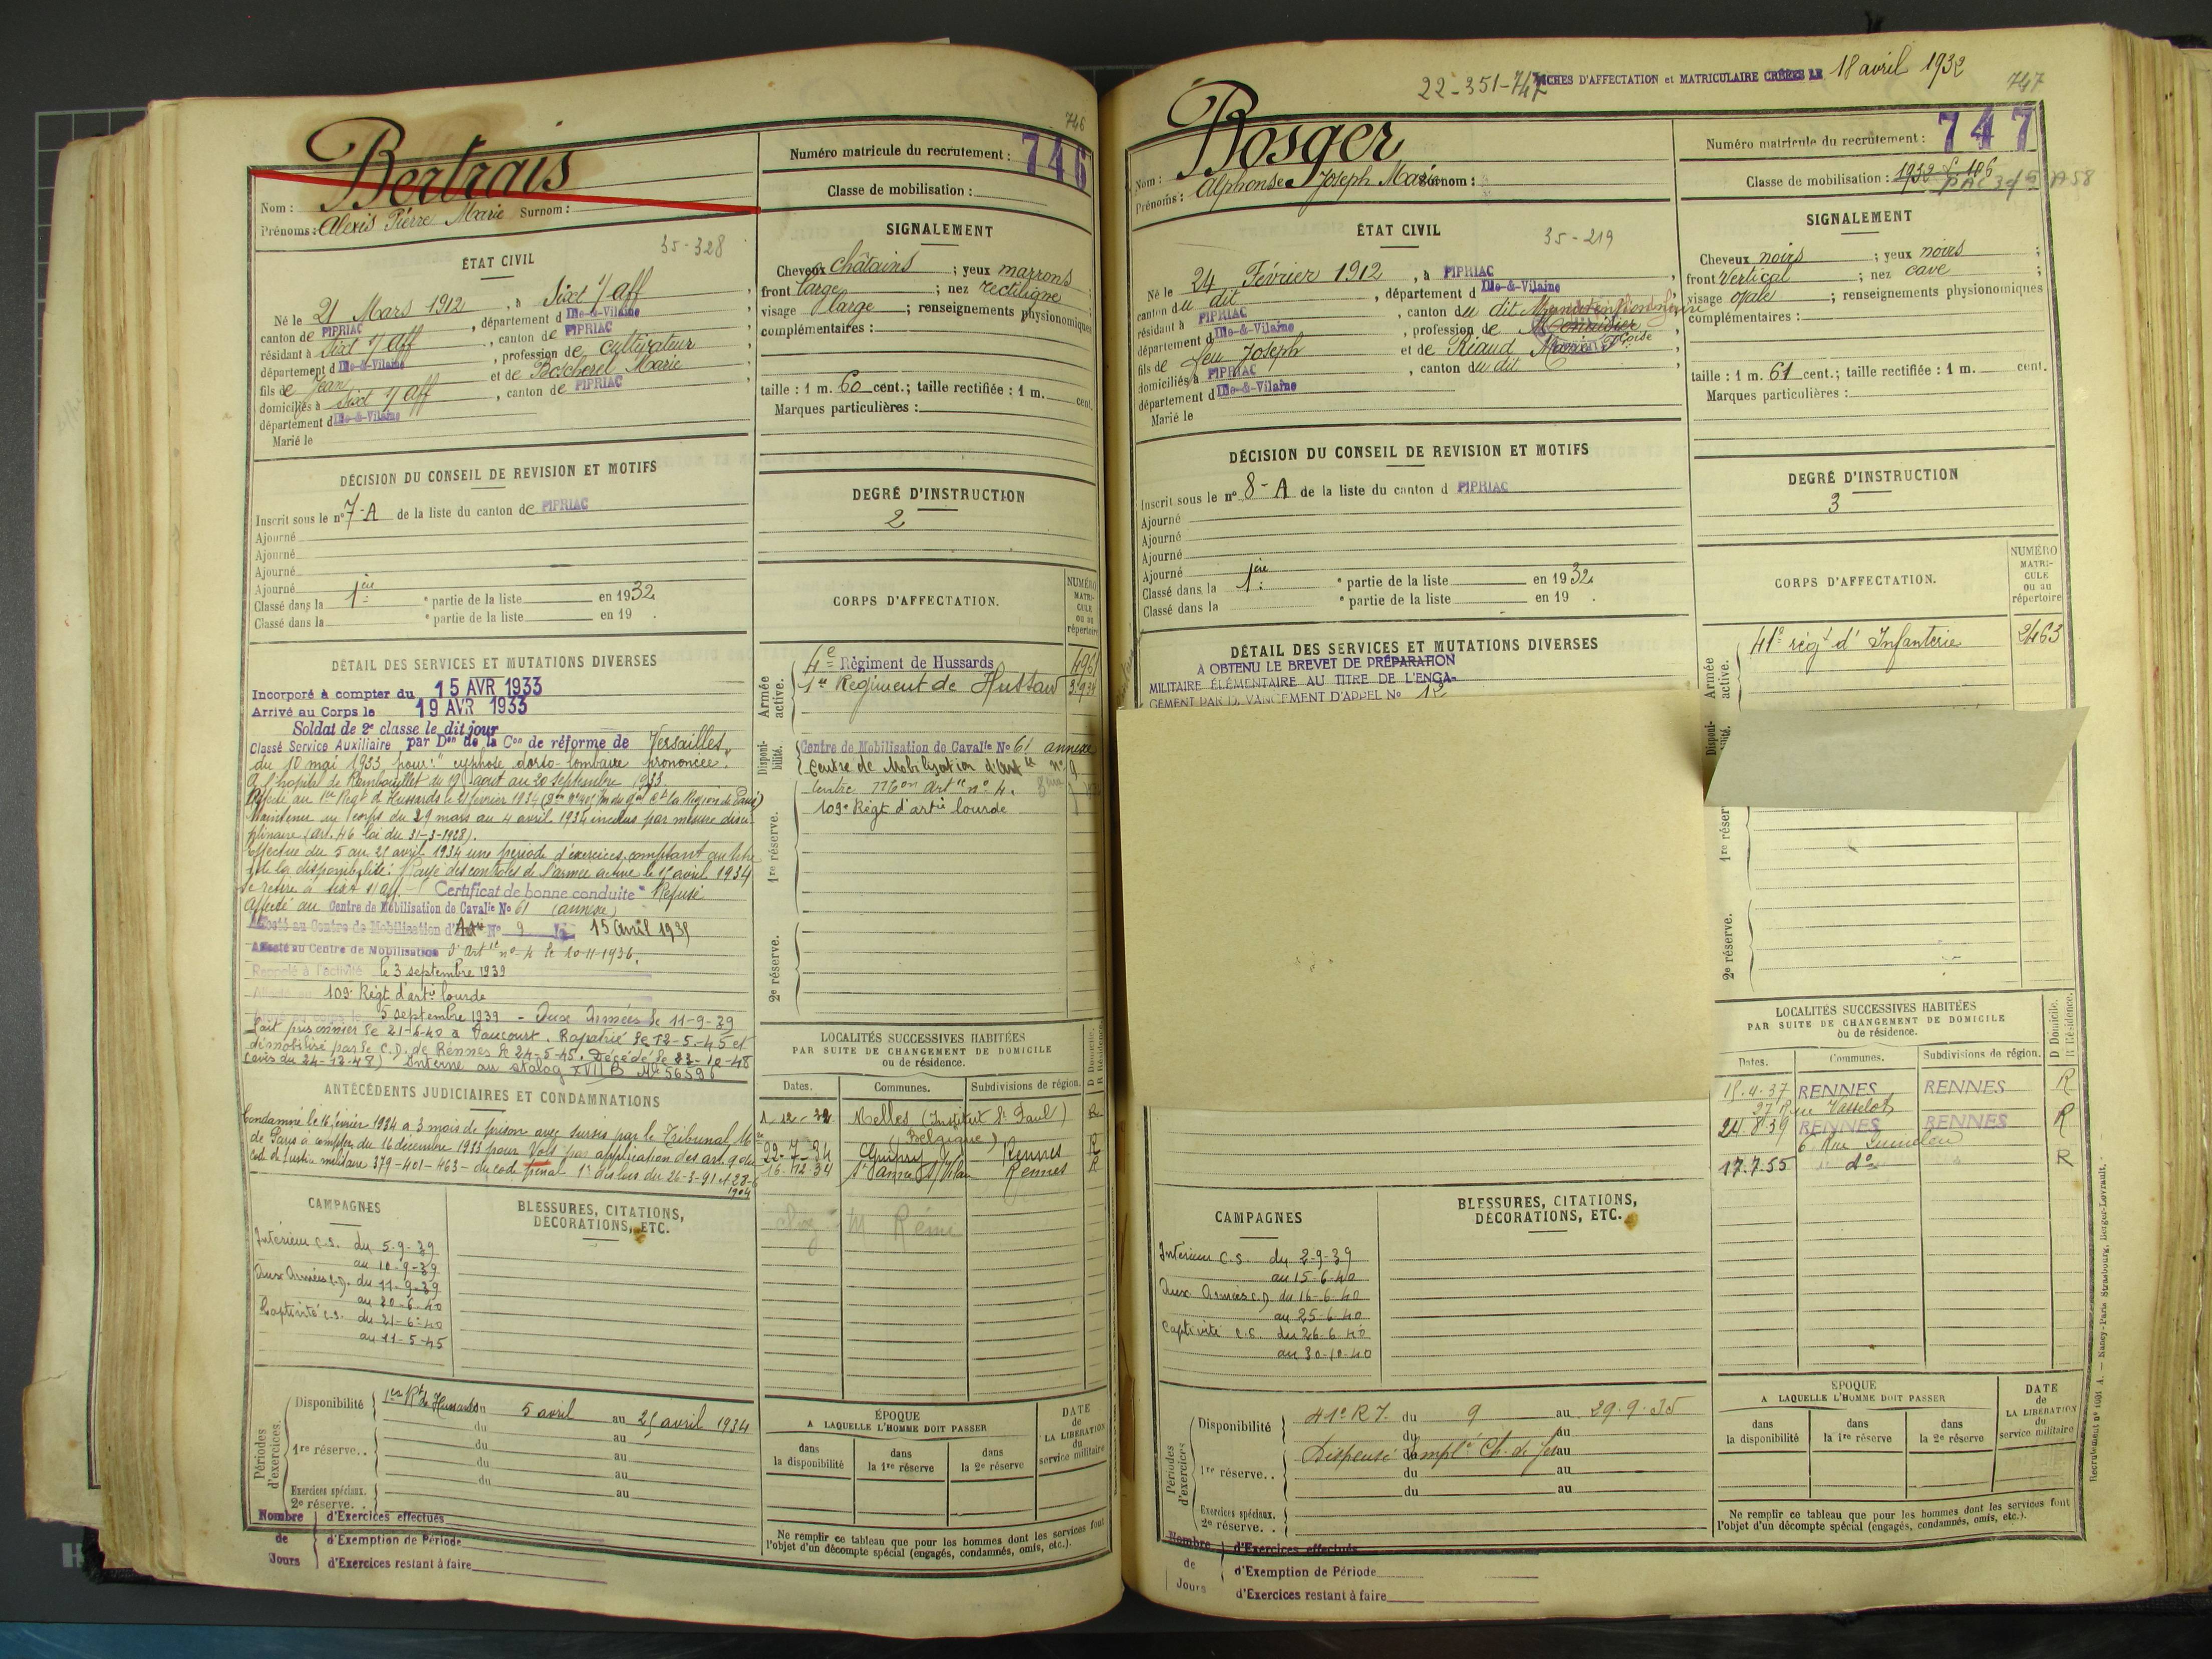 746
Bertrais
Nom :
Prénoms : Alexis Pierre Marie Surnom :
Numéro matricule du recrutement : 746
Classe de mobilisation :
ÉTAT CIVIL
35-328
Né le 21 Mars 1912, à Sixt s/aff
canton de PIPRIAC, département d Ille-&-Vilaine
résidant à Sixt s/aff, canton de PIPRIAC
département d Ille-&-Vilaine, profession de cultivateur
fils de Jean et de Boscherel Marie
domiciliés à Sixt s/aff, canton de PIPRIAC
département d Ille-&-Vilaine
Marié le
SIGNALEMENT
Cheveux châtains ; yeux marrons ;
front large ; nez rectiligne ;
visage large ; renseignements physionomiques
complémentaires :
taille : 1 m. 60 cent.; taille rectifiée : 1 m. cent.
Marques particulières :
DÉCISION DU CONSEIL DE REVISION ET MOTIFS
Inscrit sous le nº 7-A de la liste du canton de PIPRIAC
Ajourné
Ajourné
Ajourné
Ajourné
Classé dans la 1ère partie de la liste en 1932
Classé dans la e partie de la liste en 19 .
DEGRÉ D'INSTRUCTION
2
DÉTAIL DES SERVICES ET MUTATIONS DIVERSES
Incorporé à compter du 15 AVR 1933
Arrivé au Corps le 19 AVR 1933
Soldat de 2e classe le dit jour
Classé Service Auxiliaire par Don de la Con de réforme de Versailles
du 10 mai 1933 pour : "cyphose dorso-lombaire prononcée."
A l'hôpital de Rambouillet du 19 aout au 20 septembre 1933
Affecté au 1er Regt de Hussards le 21 février 1934
Maintenu au corps du 29 mars au 4 avril 1934 inclus par mesure disci-
plinaire (art. 46 loi du 31-3-1928).
Effectue du 5 au 21 avril 1934 une période d'exercices comptant au titre
de la disponibilité. Rayé des contrôles de l'armée active le avril 1934
Se retire à Sixt s/aff - Certificat de bonne conduite "Refusé"
Affecté au Centre de Mobilisation de Cavalie No 61 (annexe)
Affecté au Centre de Mobilisation d'Artie No 9 le 15 avril 1935
Affecté au Centre de Mobilisation d'Artie nº 4 le 10-11-1936.
Rappelé à l'activité le 3 septembre 1939
109e Régt d'artie lourde
5 septembre 1939 - Aux Armées le 11-9-39
Fait prisonnier le 21-6-40 à Vaucourt. Rapatrié le 12-5-45 et
démobilisé par le C.D. de Rennes le 24-5-45. Décédé le 23-10-48
(avis du 24-12-48) Interné au stalag XVII B Mle 56596
CORPS D'AFFECTATION.
NUMÉRO MATRICULE ou au répertoire
Armée active.
4e Régiment de Hussards
1er Régiment de Hussards
Disponibilité.
Centre de Mobilisation de Cavalie No 61 annexe
Centre de Mobilisation d'Artie nº 9
Centre Mon Artie nº 4.
109e Régt d'artie lourde
1re réserve.
2e réserve.
LOCALITÉS SUCCESSIVES HABITÉES
PAR SUITE DE CHANGEMENT DE DOMICILE
ou de résidence.
D Domicile. R Résidence.
Dates. Communes. Subdivisions de région.
1-12-32 Melles (Institut St Paul)
(Belgique)
22-7-34 Guipry Rennes R
16-12-34 Rennes R
ANTÉCÉDENTS JUDICIAIRES ET CONDAMNATIONS
Condamné le 16 février 1934 à 3 mois de prison avec sursis par le Tribunal Mre
de Paris à compter du 16 décembre 1933 pour Vols par application des art. 9 du
code de justice militaire 379-401-463- du code pénal 1er des lois du 26-3-91 et 28-6
1904
CAMPAGNES
Intérieur C.S. du 5-9-39
au 10-9-39
Aux Armées C.D. du 11-9-39
au 20-6-40
Captivité C.S. du 21-6-40
au 11-5-45
BLESSURES, CITATIONS,
DÉCORATIONS, ETC.
Périodes d'exercices.
Disponibilité 1er Rt de Hussards du 5 avril au 21 avril 1934
du au
1re réserve.. du au
du au
du au
Exercices spéciaux. au
2e réserve. .
Nombre de Jours
d'Exercices effectués
d'Exemption de Période
d'Exercices restant à faire
ÉPOQUE
A LAQUELLE L'HOMME DOIT PASSER
dans la disponibilité
dans la 1re réserve
dans la 2e réserve
DATE de LA LIBÉRATION du service militaire
Ne remplir ce tableau que pour les hommes dont les services font
l'objet d'un décompte spécial (engagés, condamnés, omis, etc.).
22-351-747
FICHES D'AFFECTATION et MATRICULAIRE CRÉÉES LE 18 avril 1932
747
Bosger
Nom :
Prénoms : Alphonse Joseph Marie Surnom :
Numéro matricule du recrutement : 747
Classe de mobilisation : 1932
ÉTAT CIVIL
35-219
Né le 24 Février 1912, à PIPRIAC
canton du dit, département d Ille-&-Vilaine
résidant à PIPRIAC, canton du dit
département d Ille-&-Vilaine, profession de Menuisier
fils de feu Joseph et de Riaud Marie Fçoise
domiciliés à PIPRIAC, canton du dit
département d Ille-&-Vilaine
Marié le
SIGNALEMENT
Cheveux noirs ; yeux noirs ;
front Vertical ; nez cave ;
visage ovale ; renseignements physionomiques
complémentaires :
taille : 1 m. 61 cent.; taille rectifiée : 1 m. cent.
Marques particulières :
DÉCISION DU CONSEIL DE REVISION ET MOTIFS
Inscrit sous le nº 8-A de la liste du canton d PIPRIAC
Ajourné
Ajourné
Ajourné
Ajourné
Classé dans la 1ère partie de la liste en 1932
Classé dans la e partie de la liste en 19 .
DEGRÉ D'INSTRUCTION
3
DÉTAIL DES SERVICES ET MUTATIONS DIVERSES
A OBTENU LE BREVET DE PRÉPARATION
MILITAIRE ÉLÉMENTAIRE AU TITRE DE L'ENGA-
GEMENT PAR DEVANCEMENT D'APPEL No 12
CORPS D'AFFECTATION.
NUMÉRO MATRICULE ou au répertoire
Armée active.
41e régt d'Infanterie 2463
Disponibilité.
1re réserve.
2e réserve.
LOCALITÉS SUCCESSIVES HABITÉES
PAR SUITE DE CHANGEMENT DE DOMICILE
ou de résidence.
D Domicile. R Résidence.
Dates. Communes. Subdivisions de région.
15.4.37 RENNES RENNES R
27 Rue Vasselot
24.8.39 RENNES RENNES R
6 Rue
17.7.55 dº R
CAMPAGNES
Intérieur C.S. du 2-9-39
au 15-6-40
Aux Armées C.D. du 16-6-40
au 25-6-40
Captivité C.S. du 26-6-40
au 30-10-40
BLESSURES, CITATIONS,
DÉCORATIONS, ETC.
Périodes d'exercices
Disponibilité 41e R.I. du 9 au 29.9.35
du au
Dispensé emplé Ch. d. fer
1re réserve.. du au
du au
Exercices spéciaux.
2e réserve. .
Nombre de Jours
d'Exercices effectués
d'Exemption de Période
d'Exercices restant à faire
ÉPOQUE
A LAQUELLE L'HOMME DOIT PASSER
dans la disponibilité
dans la 1re réserve
dans la 2e réserve
DATE de LA LIBÉRATION du service militaire
Ne remplir ce tableau que pour les hommes dont les services font
l'objet d'un décompte spécial (engagés, condamnés, omis, etc.).
Nancy-Paris Strasbourg, Berger-Levrault.